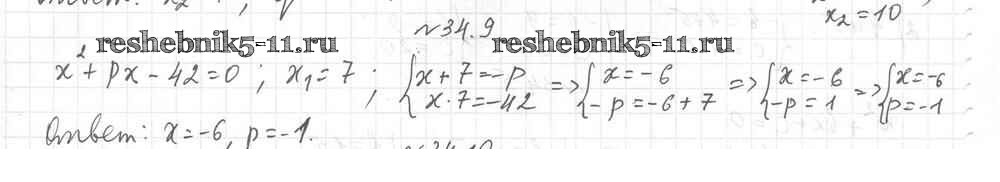 x₂ = 10
№34.9
reshebnik5-11.ru reshebnik5-11.ru
x² + px - 42 = 0 ; x₁ = 7 ; { x + 7 = -p => { x = -6 => { x = -6 => { x = -6
x · 7 = -42 - p = -6 + 7 -p = 1 p = -1
Ответ: x = -6, p = -1.